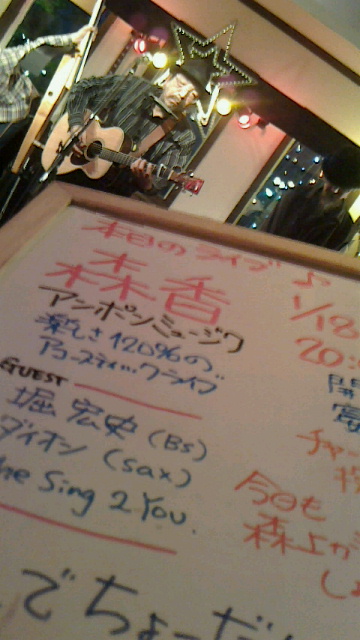 本日のライブ♪
森香
アンポンミュージック
楽しさ120%の
アコースティックライブ
GUEST
堀 宏史 (Bs)
ダイオン (sax)
the Sing 2 You.
1/18
20:
開
チャー
今日も
森上が
でちょーだ